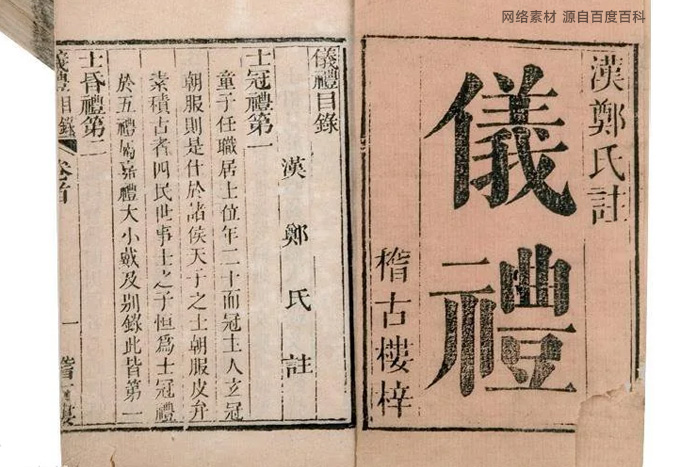 网络素材 源自百度百科
漢鄭氏註
儀禮
稽古樓梓
儀禮目錄
漢鄭氏註
士冠禮第一
童子任職居士位年二十而冠主人玄冠
朝服則是仕於諸侯天子之士朝服皮弁
素積古者四民世事士之子恒為士冠禮
於五禮屬嘉禮大小戴及别錄此皆第一
士昏禮第二
儀禮目錄
卷首
一
稽古樓